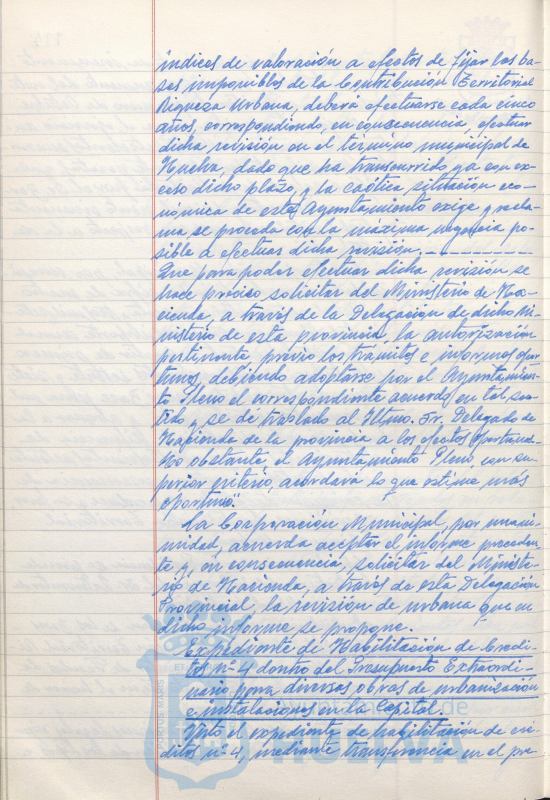 índices de valoración a efectos de fijar las ba-
ses imponibles de la Contribución Territorial
Riqueza Urbana, deberá efectuarse cada cinco
años, correspondiendo, en consecuencia, efectuar
dicha revisión en el término municipal de
Huelva, dado que ha transcurrido ya con ex-
ceso dicho plazo, y la caótica situación eco-
nómica de este Ayuntamiento exige y recla-
ma se proceda con la máxima urgencia po-
sible a efectuar dicha revisión.
Que para poder efectuar dicha revisión se
hace preciso solicitar del Ministerio de Ha-
cienda, a través de la Delegación de dicho Mi-
nisterio de esta provincia, la autorización
pertinente, previo los trámites e informes opor-
tunos, debiendo adoptarse por el Ayuntamien-
to Pleno el correspondiente acuerdo en tal sen-
tido y se dé traslado al Iltmo. Sr. Delegado de
Hacienda de la provincia a los efectos oportunos.
No obstante, el Ayuntamiento Pleno, con su-
perior criterio, acordará lo que estime más
oportuno".
La Corporación Municipal, por unani-
midad, acuerda aceptar el informe preceden-
te y, en consecuencia, solicitar del Ministe-
rio de Hacienda, a través de esta Delegación
Provincial, la revisión de urbana que en
dicho informe se propone.
Expediente de Habilitación de Crédi-
tos nº 4 dentro del Presupuesto Extraordi-
nario para diversas obras de urbanización
e instalaciones en la Capital.
Visto el expediente de habilitación de cré-
ditos nº 4, mediante transferencia en el pre-
PORTUS MARIS
ET
de
HUELVA